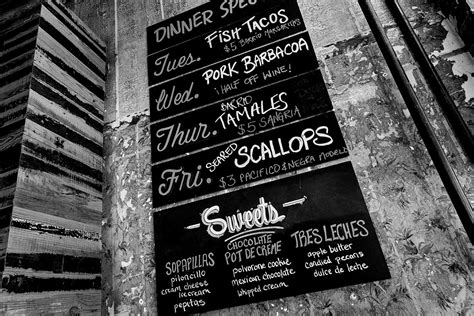 DINNER SPE
Tues. FISH TACOS
$5 BARRIO MARGARITAS
Wed. PORK BARBACOA
½ HALF OFF WINE!
Thur. BARRIO
TAMALES
$5 SANGRIA
Fri. SEARED SCALLOPS
$3 PACIFICO & NEGRA MODELO
Sweets
SOPAPILLAS
piloncillo
cream cheese
icecream
pepitas
CHOCOLATE
POT DE CREME
polvorone cookie
mexican chocolate
whipped cream
TRES LECHES
apple butter
candied pecans
dulce de leche